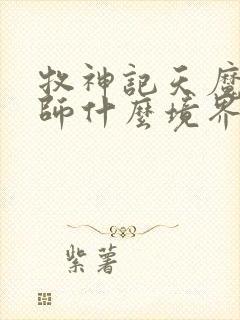 牧神記天魔
師什麼境界
紫薯